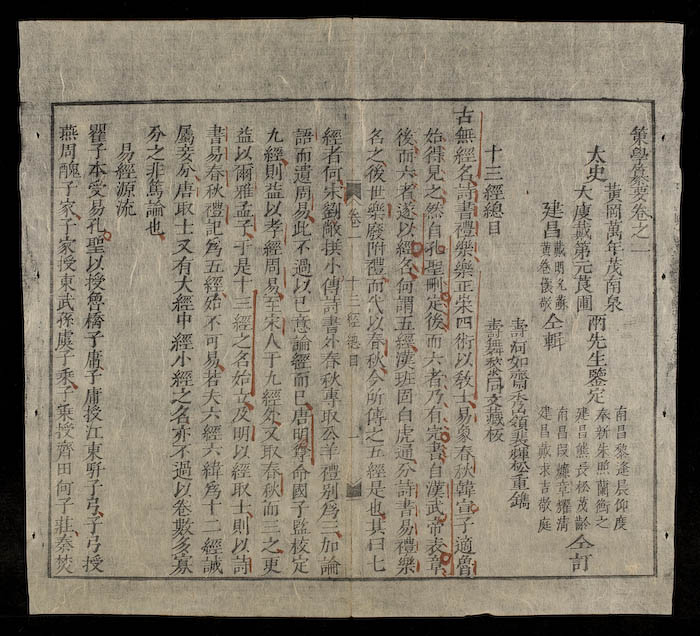 策學纂要卷之一
黃岡萬年茂南泉
太史
大庾戴第元崀圃
兩先生鑒定
建昌
戴朋
蘇
黃卷
敬
仝輯
南昌黎逢辰仰度
奉新朱照蘭衡之
建昌熊長松茂齡
南昌段
章耀清
建昌戴求吉敬庭
仝訂
壽河如齋香嶺裴輝松重鐫
壽舞
同文藏板
十三經總目
古無經名詩書禮樂樂正崇四術以敎士易象春秋韓宣子適魯
始得見之然自孔聖刪定後而六者乃有定書自漢武帝表章
後而六者遂以經名何謂五經漢班固白虎通分詩書易禮樂
名之後世樂廢附禮而代以春秋今所傳之五經是也其曰七
卷一
十三經總目
一
經者何宋劉敞撰小傳詩書外春秋專取公羊禮別爲三加論
語而遺周易此不過以己意論經而已唐明皇命國子監校定
九經則益以孝經周易至宋人于九經外又取春秋而三之更
益以爾雅孟子于是十三經之名始立及明以經取士則以詩
書易春秋禮記爲五經始不可易若夫六經六緯爲十二經誠
屬妄分唐取士又有大經中經小經之名亦不過以卷數多寡
分之非篤論也
易經源流
瞿子本受易孔聖以授魯橋子庸子庸授江東馯子弓子弓授
燕周醜子家子家授東武孫虞子乘子乘授齊田何子莊秦焚